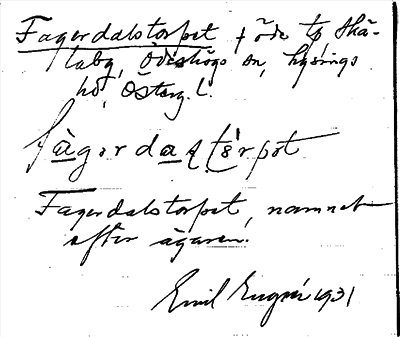 Fagerdalstorpet, öde tp Skå-
laby, Ödeshögs sn, Lysings
hd, Österg. l.
fàgərdaʂtɵ́rpət
Fagerdalstorpet, namnet
efter ägaren.
Emil 1931